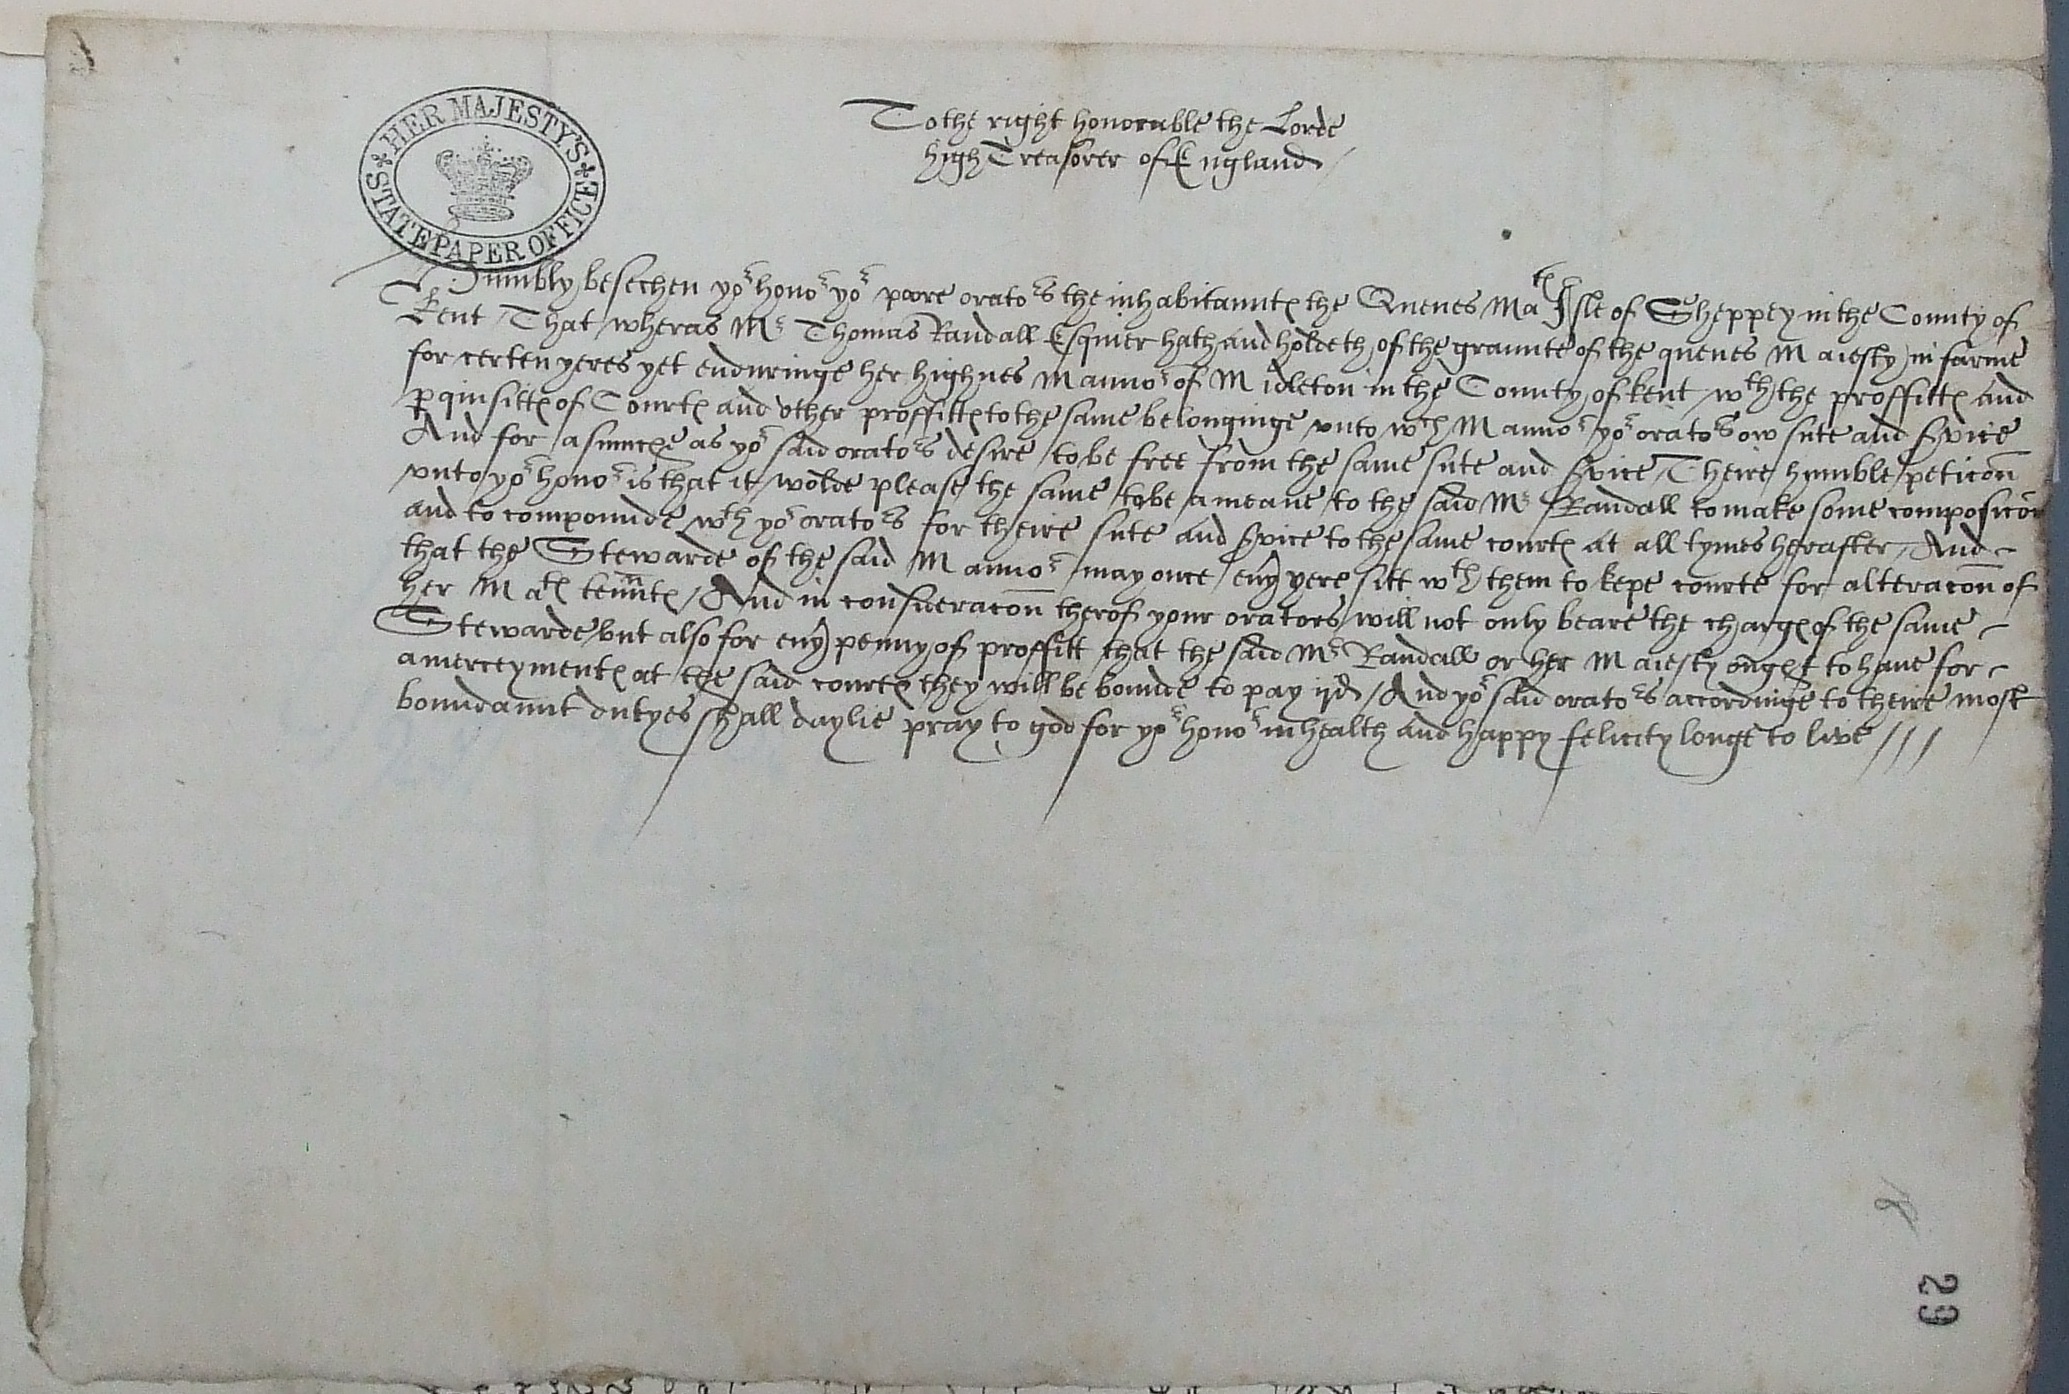 To the right honorable the Lorde
high Treasorer of England
HER MAJESTY'S STATE PAPER OFFICE
Humbly besechen yor honor yor poore orators the inhabitauntes the Quenes Maties Isle of Sheppey in the County of
Kent / That wheras Mr Thomas Randall Esquier hath and holdeth of the graunte of the quenes Maiesty in farme
for certen yeres yet enduringe her highnes Mannor of Midleton in the County of kent wth the proffittes and
pquisittes of Courtes and other proffittes to the same belonginge vnto wch Mannor yor orators ow sute and svice
And for asmuche as yor said orators desire to be free from the same sute and svice / Theire humble peticon
vnto yor honor is that it wolde please the same to be a meane to the said Mr Randall to make some composicon
and to compounde wth yor orators for theire sute and svice to the same courtes at all tymes herafter / And
that the Stewarde of the said Mannor may once eu'y yere sitt wth them to kepe courte for alteracon of
her Maties tenntes / And in consideracon therof your orators will not only beare the charges of the same
Stewarde but also for eu'y penny of proffitt that the said Mr Randall or her Maiesty ought to haue for
amerceymentes at the said courtes they will be bounde to pay ijd / And yor said orators accordinge to theire most
boundaunt dutyes shall daylie pray to god for yor honor in health and happy felicity longe to live ///
29